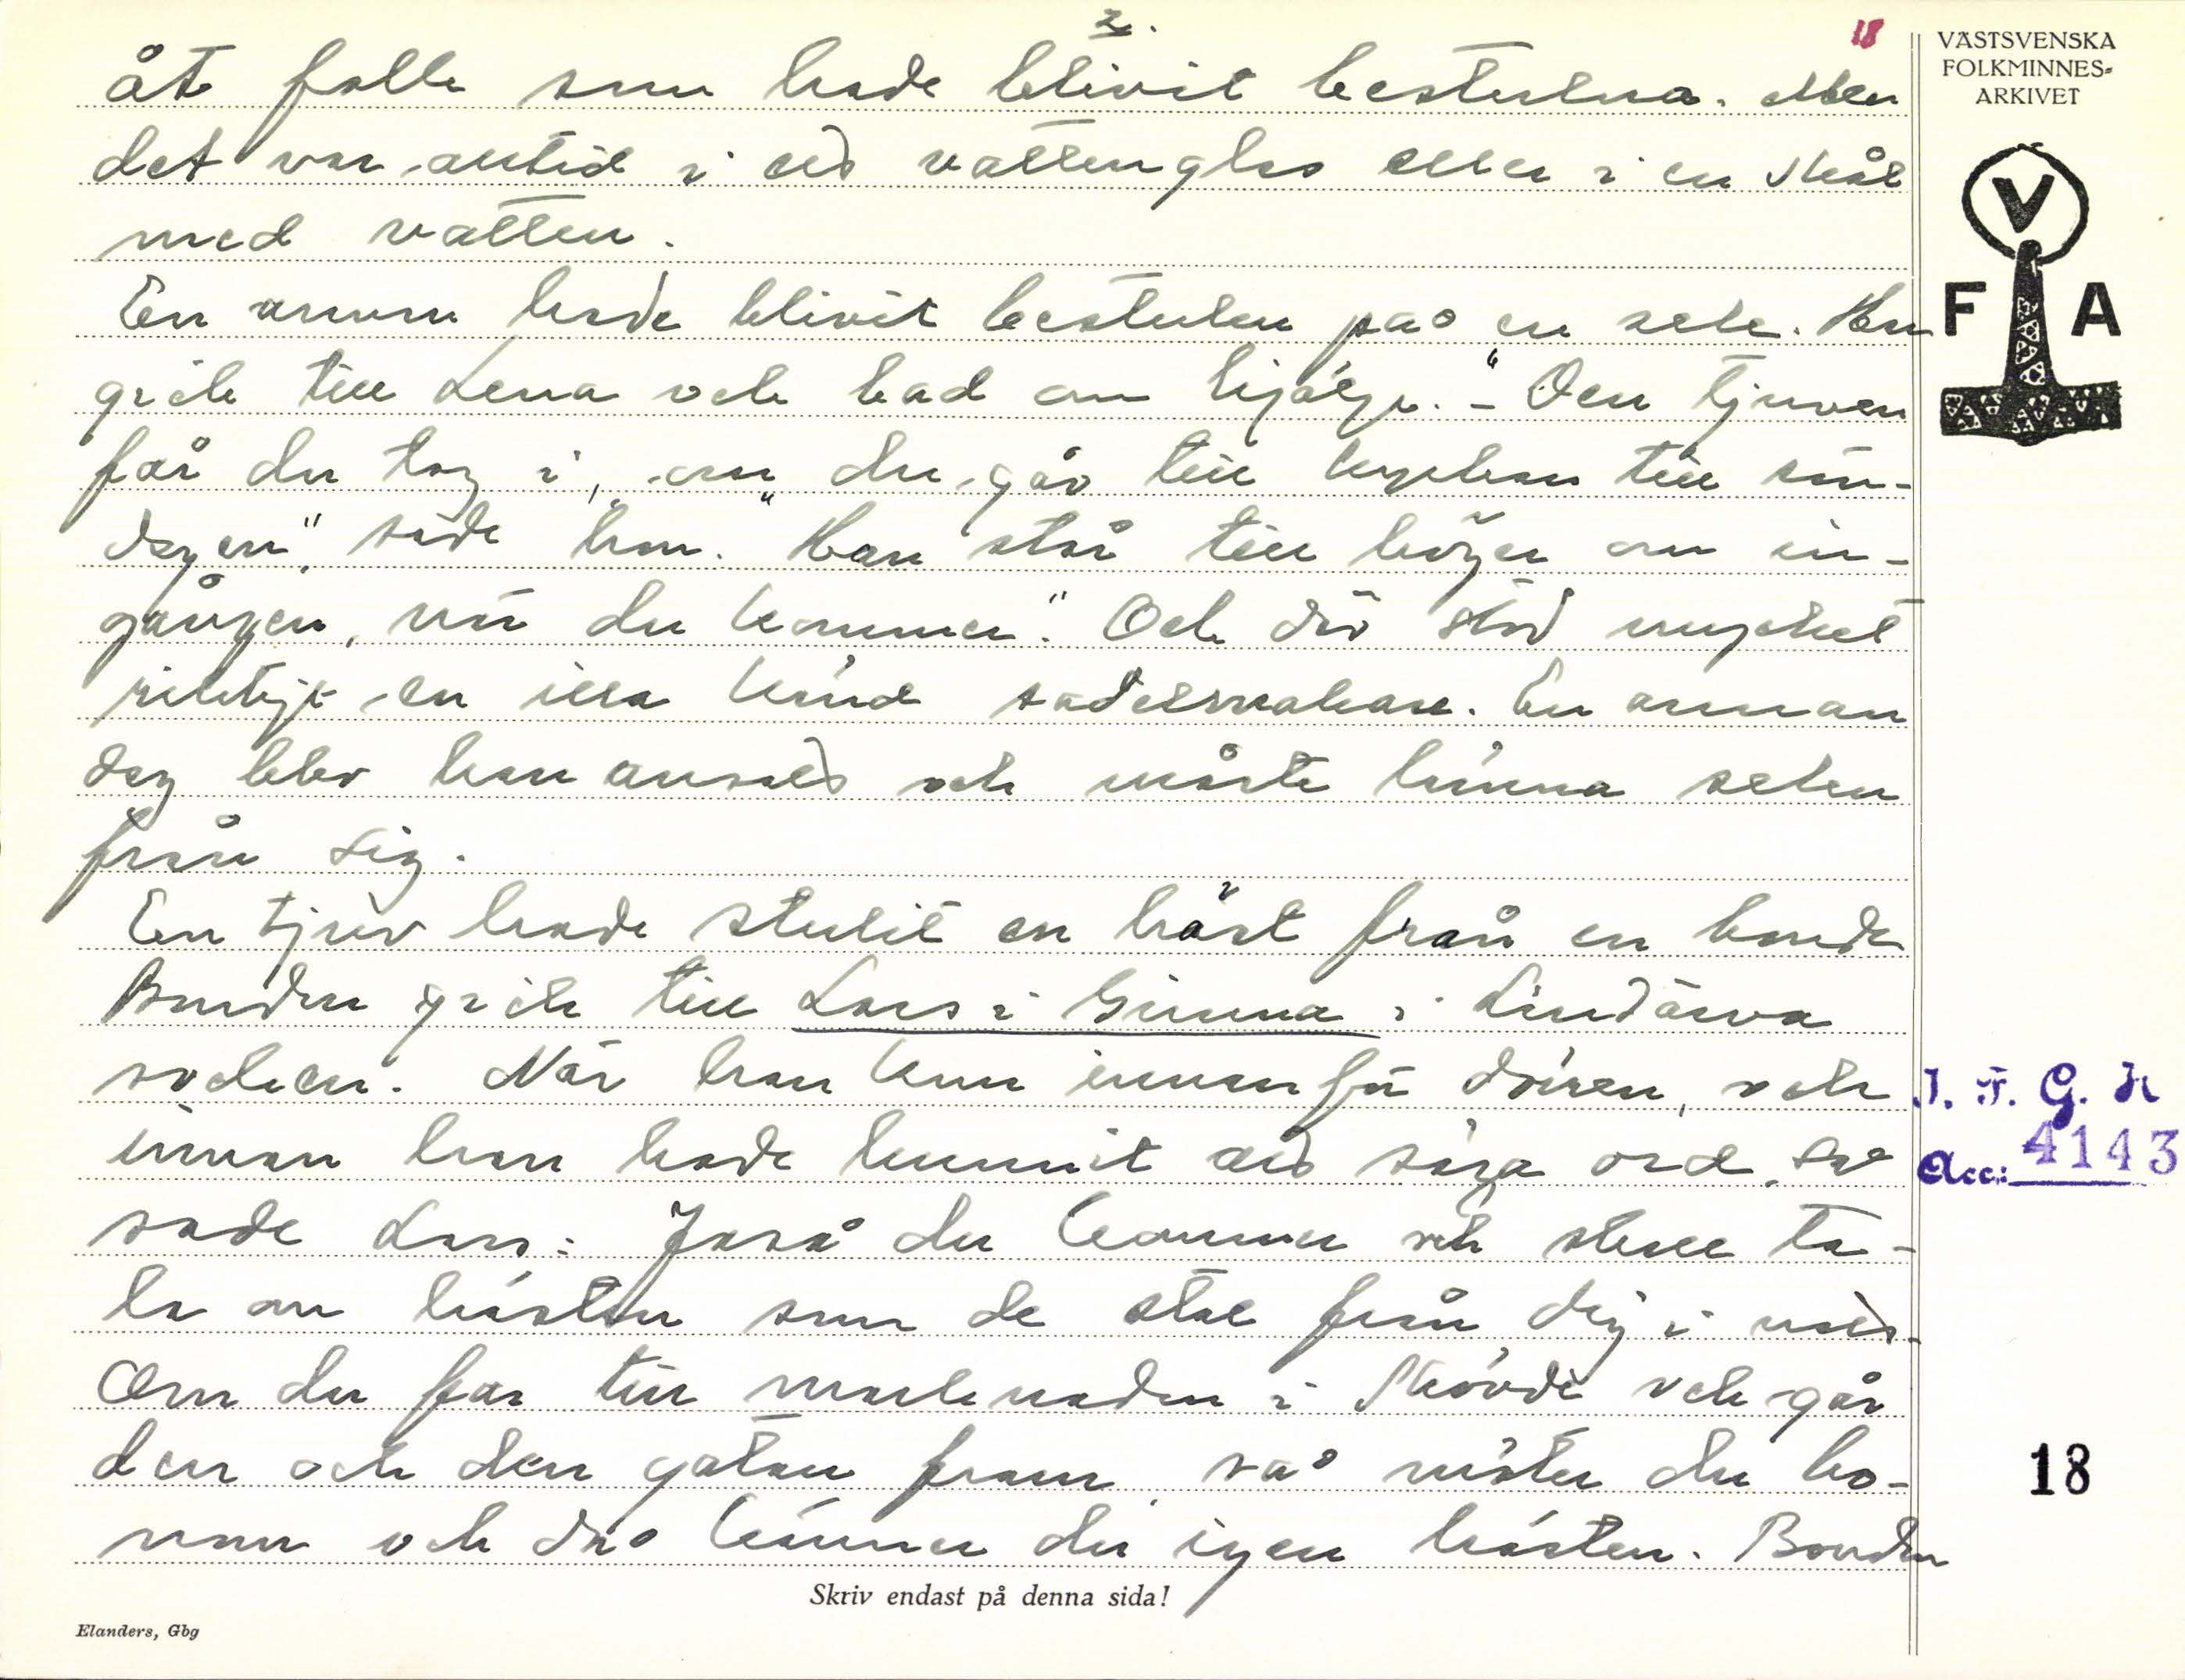 2.
18
åt folk som hade blivit bestulna. Men
det var alltid i ett vattenglas eller i en skål
med vatten.
En annan hade blivit bestulen på en sele. Han
gick till Lena och bad om hjälp. - "Den tjuven
får du tag i, om du går till kyrkan till sön-
dagen", sade hon. "Han står till höger om in-
gången, när du kommer". Och där stod mycket
riktigt en illa känd sadelmakare. En annan
dag blev han anhåls och måste lämna selen
från sig.
En tjuv hade stulit en häst från en bonde
Bonden gick till Lars i Gimma i Lindärva
socken. När han kom innanför dörren, och
innan han hade hunnit att säga ord, så
sade Lars: Jaså du kommer och skall ta-
la om hästen som de stal från dig i natt.
Om du far till marknaden i Skövde och går
den och den gatan fram, så möter du ho-
nom och då känner du igen hästen. Bonden
VÄSTSVENSKA
FOLKMINNES-
ARKIVET
V
F A
I. F. G. H
Acc: 4143
18
Skriv endast på denna sida!
Elanders, Gbg